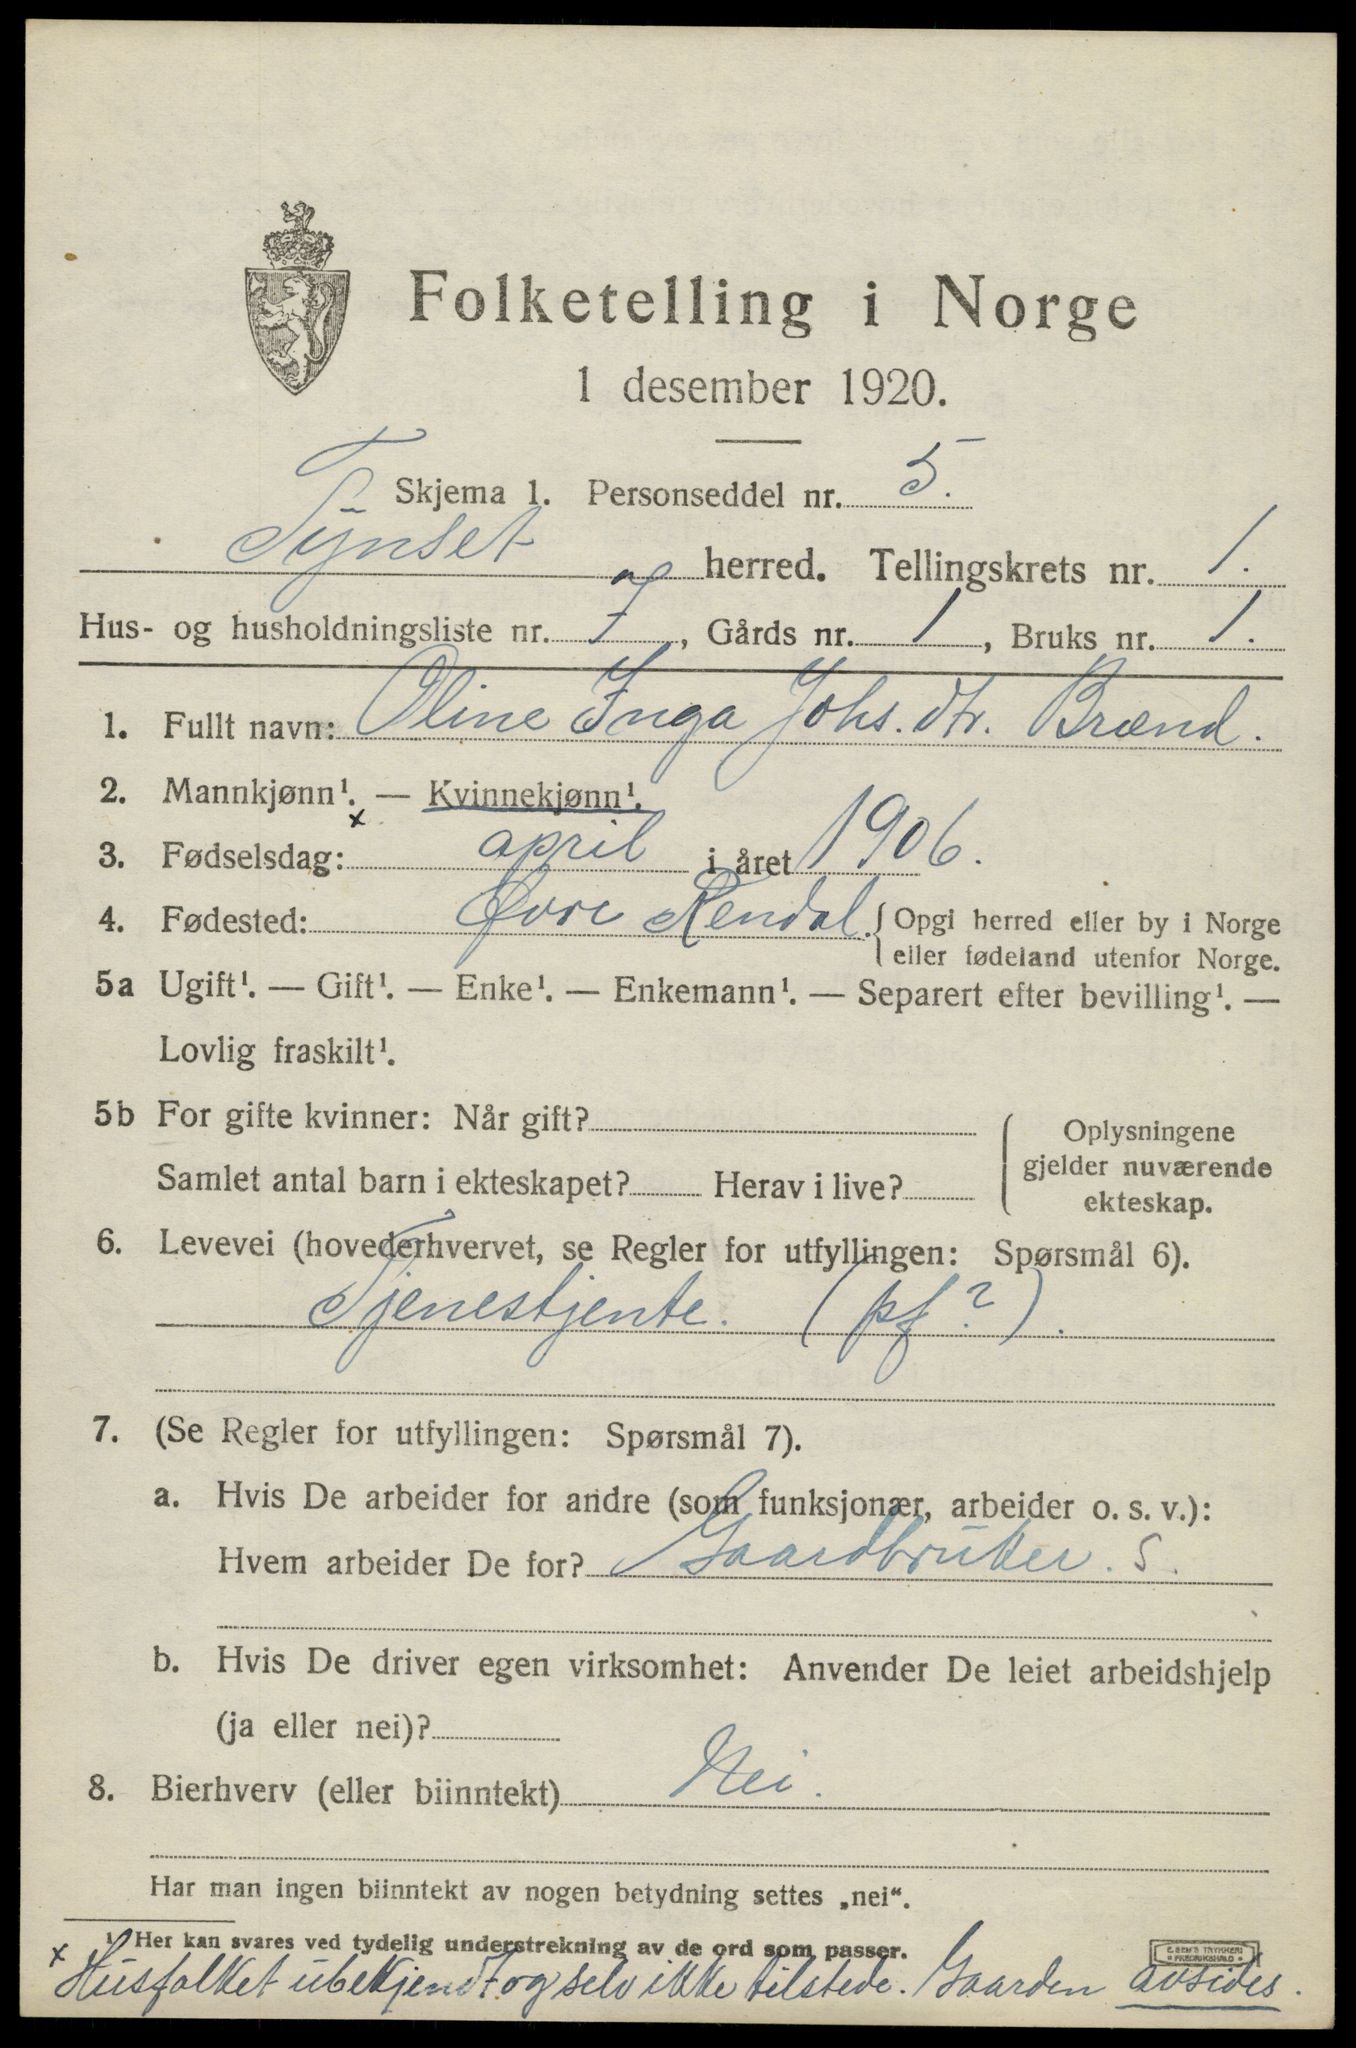 Folketelling i Norge
1 desember 1920.
Skjema 1. Personseddel nr. 5.
Tynset herred. Tellingskrets nr. 1.
Hus- og husholdningsliste nr. 7, Gårds nr. 1, Bruks nr. 1.
1. Fullt navn: Oline Inga Johs. dtr. Brænd.
2. Mannkjønn¹. — Kvinnekjønn¹.
3. Fødselsdag: x april i året 1906.
4. Fødested: Øvre Rendal. { Opgi herred eller by i Norge
eller fødeland utenfor Norge.
5a Ugift¹. — Gift¹. — Enke¹. — Enkemann¹. — Separert efter bevilling¹. —
Lovlig fraskilt¹.
5b For gifte kvinner: Når gift?
Samlet antal barn i ekteskapet? Herav i live?
Oplysningene
gjelder nuværende
ekteskap.
6. Levevei (hovederhvervet, se Regler for utfyllingen: Spørsmål 6).
Tjenestjente. (pf?).
7. (Se Regler for utfyllingen: Spørsmål 7).
a. Hvis De arbeider for andre (som funksjonær, arbeider o. s. v.):
Hvem arbeider De for? Gaardbruker. S.
b. Hvis De driver egen virksomhet: Anvender De leiet arbeidshjelp
(ja eller nei)?
8. Bierhverv (eller biinntekt) Nei.
Har man ingen biinntekt av nogen betydning settes „nei“.
¹ Her kan svares ved tydelig understrekning av de ord som passer.
E. SEM'S TRYKKERI
FREDRIKSHALD
x Husfolket ubekjendt og selv ikke tilstede. Gaarden avsides.